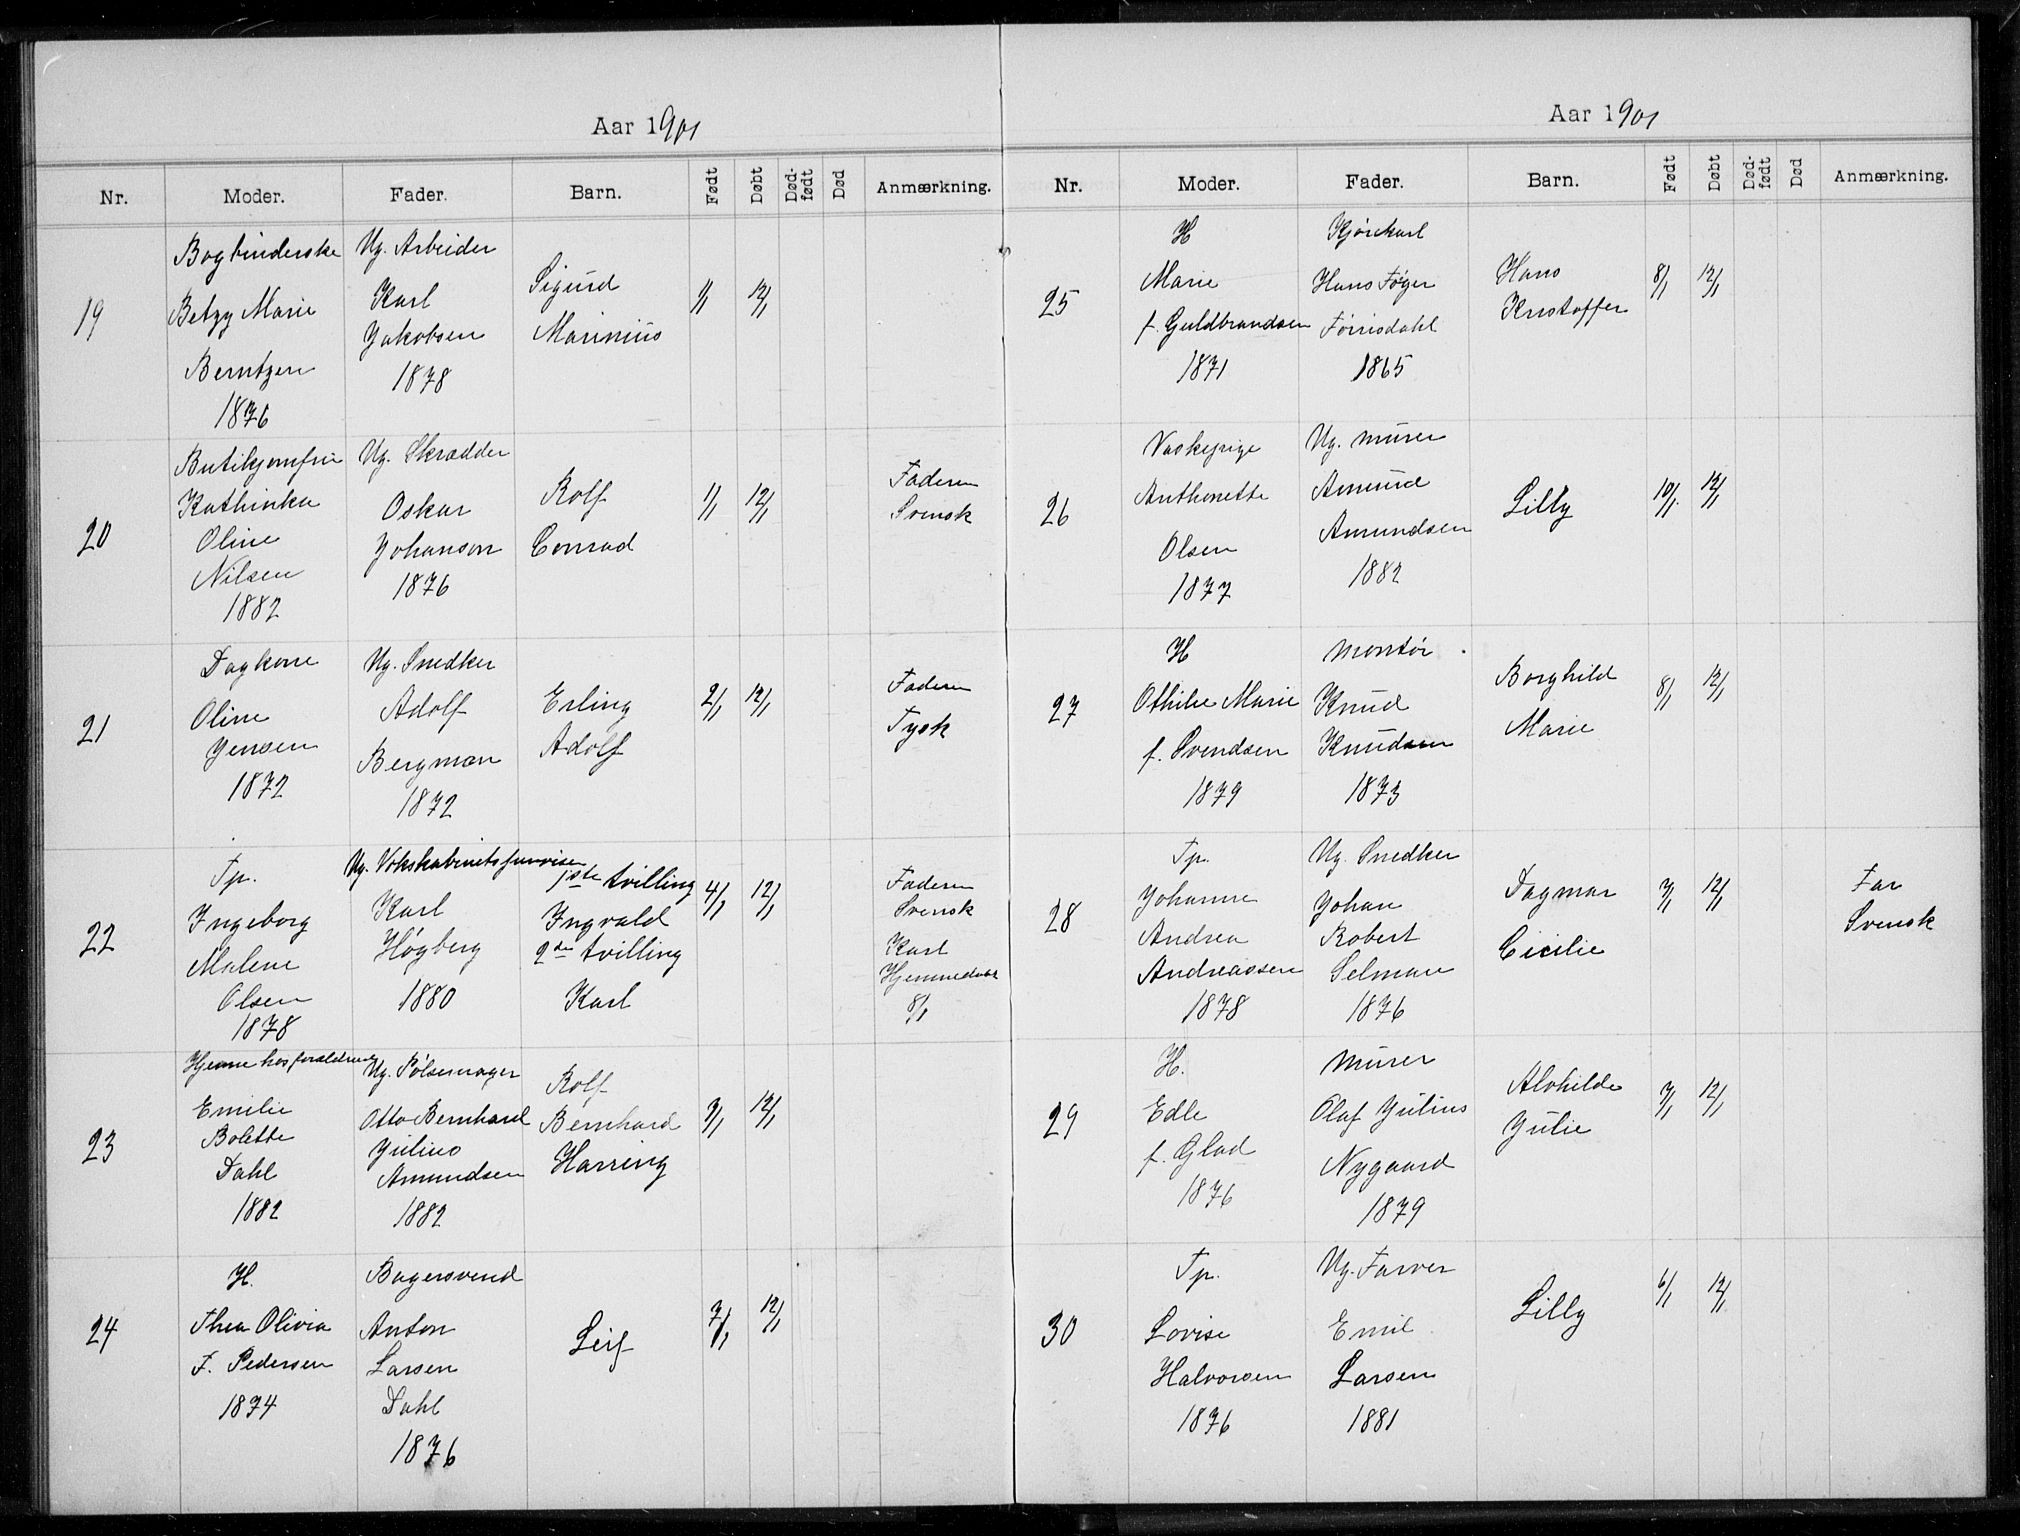 Aar 1901
Nr. Moder. Fader. Barn. Født Døbt Død-født Død Anmærkning.
19
Bogbinderske
Betzy Marie
Berntzen
1876
Ug. Arbeider
Karl
Jakobsen
1878
Sigurd
Marinius
1/1 12/1
20
Butikjomfru
Kathinka
Oline
Nilsen
1882
Ug. Skrædder
Oskar
Johanson
1876
Rolf
Conrad
1/1 12/1
Faderen
Svensk
21
Dagkone
Oline
Jensen
1872
Ug. Snedker
Adolf
Bergman
1872
Erling
Adolf
2/1 12/1
Faderen
Tysk
22
Tp.
Ingeborg
Malene
Olsen
1878
Ug. Vokskabinetsforeviser
Karl
Høgberg
1880
1ste tvilling
Ingvald
2den tvilling
Karl
4/1 12/1
Faderen
Svensk
Karl
Hjemmedøbt
8/1
23
Hjemme hos forældrene
Emilie
Bolette
Dahl
1882
Ug. Pølsemager
Otto Bernhard
Julius
Amundsen
1882
Rolf
Bernhard
Harring
7/1 12/1
24
H.
Thea Olivia
F. Pedersen
1874
Bagersvend
Anton
Larsen
Dahl
1876
Leif
7/1 12/1
Aar 1901
Nr. Moder. Fader. Barn. Født Døbt Død-født Død Anmærkning.
25
H
Marie
f. Guldbrandsen
1871
Kjørekarl
Hans Føger
Tørrisdahl
1865
Hans
Kristoffer
8/1 12/1
26
Vaskepige
Anthonette
Olsen
1877
Ug. murer
Amund
Amundsen
1882
Lilly
10/1. 12/1
27
H
Othilie Marie
f. Svendsen
1879
montør
Knud
Knudsen
1873
Borghild
Marie
8/1 12/1
28
Tp.
Johanne
Andrea
Andreassen
1878
Ug. Snedker
Johan
Robert
Selman
1876
Dagmar
Cicilie
7/1 12/1
Far
Svensk
29
H.
Edle
f. Glad
1876
murer
Olaf Julius
Nygaard
1879
Alvhilde
Julie
7/1 12/1
30
Tp.
Lovise
Halvorsen
1876
Ug. Farver
Emil
Larsen
1881
Lilly
6/1 12/1